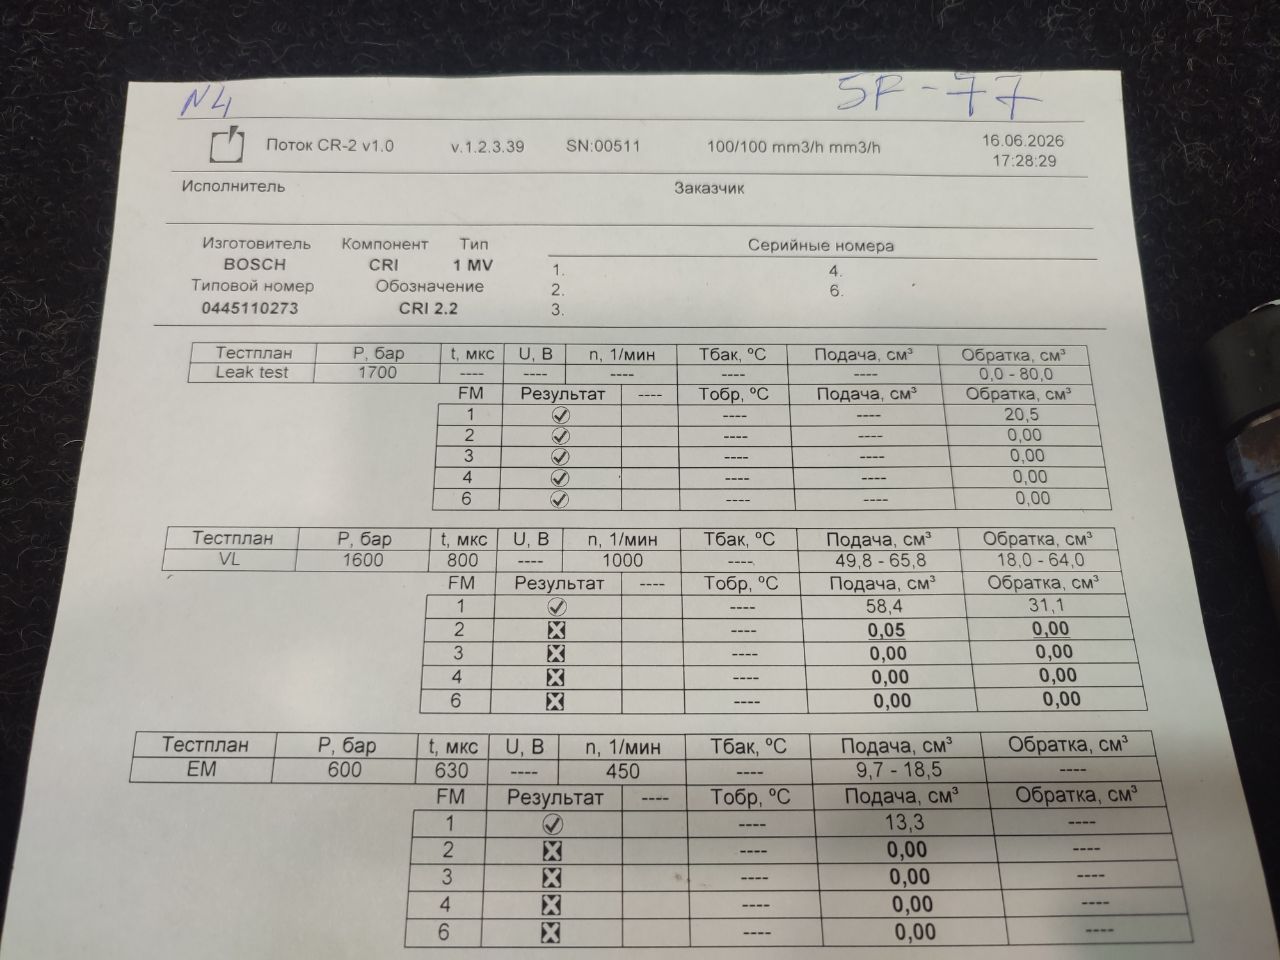 N4 5P-77
Поток CR-2 v1.0 v.1.2.3.39 SN:00511 100/100 mm3/h mm3/h 16.06.2026
17:28:29
Исполнитель Заказчик
Изготовитель Компонент Тип Серийные номера
BOSCH CRI 1 MV 1. 4.
Типовой номер Обозначение 2. 6.
0445110273 CRI 2.2 3.
Тестплан P, бар t, мкс U, В n, 1/мин Tбак, ºC Подача, см³ Обратка, см³
Leak test 1700 ---- ---- ---- ---- ---- 0,0 - 80,0
FM Результат ---- Тобр, ºC Подача, см³ Обратка, см³
1 ---- ---- 20,5
2 ---- ---- 0,00
3 ---- ---- 0,00
4 ---- ---- 0,00
6 ---- ---- 0,00
Тестплан P, бар t, мкс U, В n, 1/мин Tбак, ºC Подача, см³ Обратка, см³
VL 1600 800 ---- 1000 ---- 49,8 - 65,8 18,0 - 64,0
FM Результат ---- Тобр, ºC Подача, см³ Обратка, см³
1 ---- 58,4 31,1
2 ---- 0,05 0,00
3 ---- 0,00 0,00
4 ---- 0,00 0,00
6 ---- 0,00 0,00
Тестплан P, бар t, мкс U, В n, 1/мин Tбак, ºC Подача, см³ Обратка, см³
EM 600 630 ---- 450 ---- 9,7 - 18,5 ----
FM Результат ---- Тобр, ºC Подача, см³ Обратка, см³
1 ---- 13,3 ----
2 ---- 0,00 ----
3 ---- 0,00 ----
4 ---- 0,00 ----
6 ---- 0,00 ----